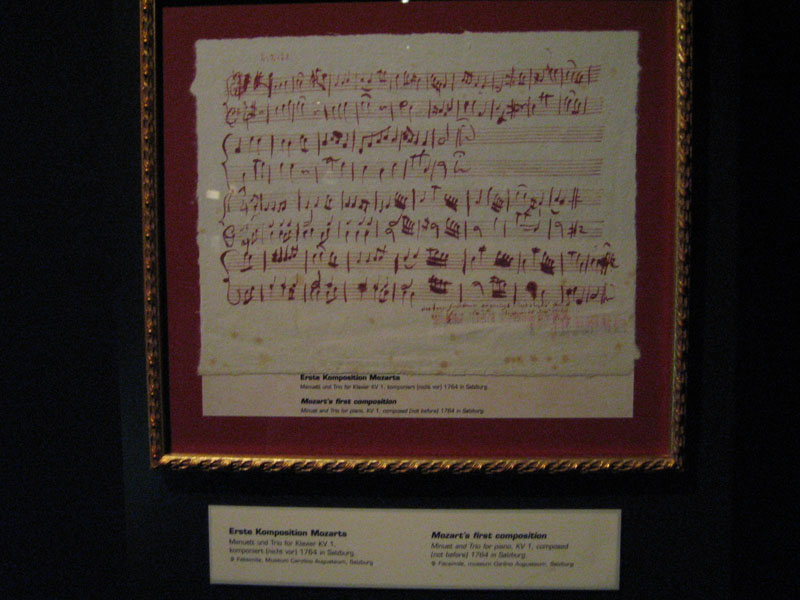 Erste Komposition Mozarts
Menuett und Trio für Klavier KV 1, komponiert (nicht vor) 1764 in Salzburg.
Mozart's first composition
Minuet and Trio for piano, KV 1, composed (not before) 1764 in Salzburg.
Erste Komposition Mozarts
Menuett und Trio für Klavier KV 1,
komponiert (nicht vor) 1764 in Salzburg.
Faksimile, Museum Carolino Augusteum, Salzburg
Mozart's first composition
Minuet and Trio for piano, KV 1, composed
(not before) 1764 in Salzburg.
Facsimile, museum Carolino Augusteum, Salzburg